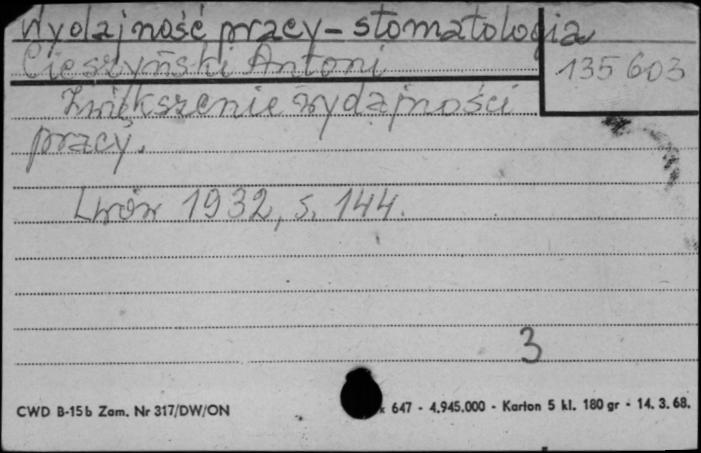 Wydajność pracy - stomatologia
Cieszyński Antoni
135 603
Zwiększenie wydajności
pracy.
Lwów 1932, s. 144.
3
CWD B-15b Zam. Nr 317/DW/ON
647 - 4.945.000 - Karton 5 kl. 180 gr - 14. 3. 68.